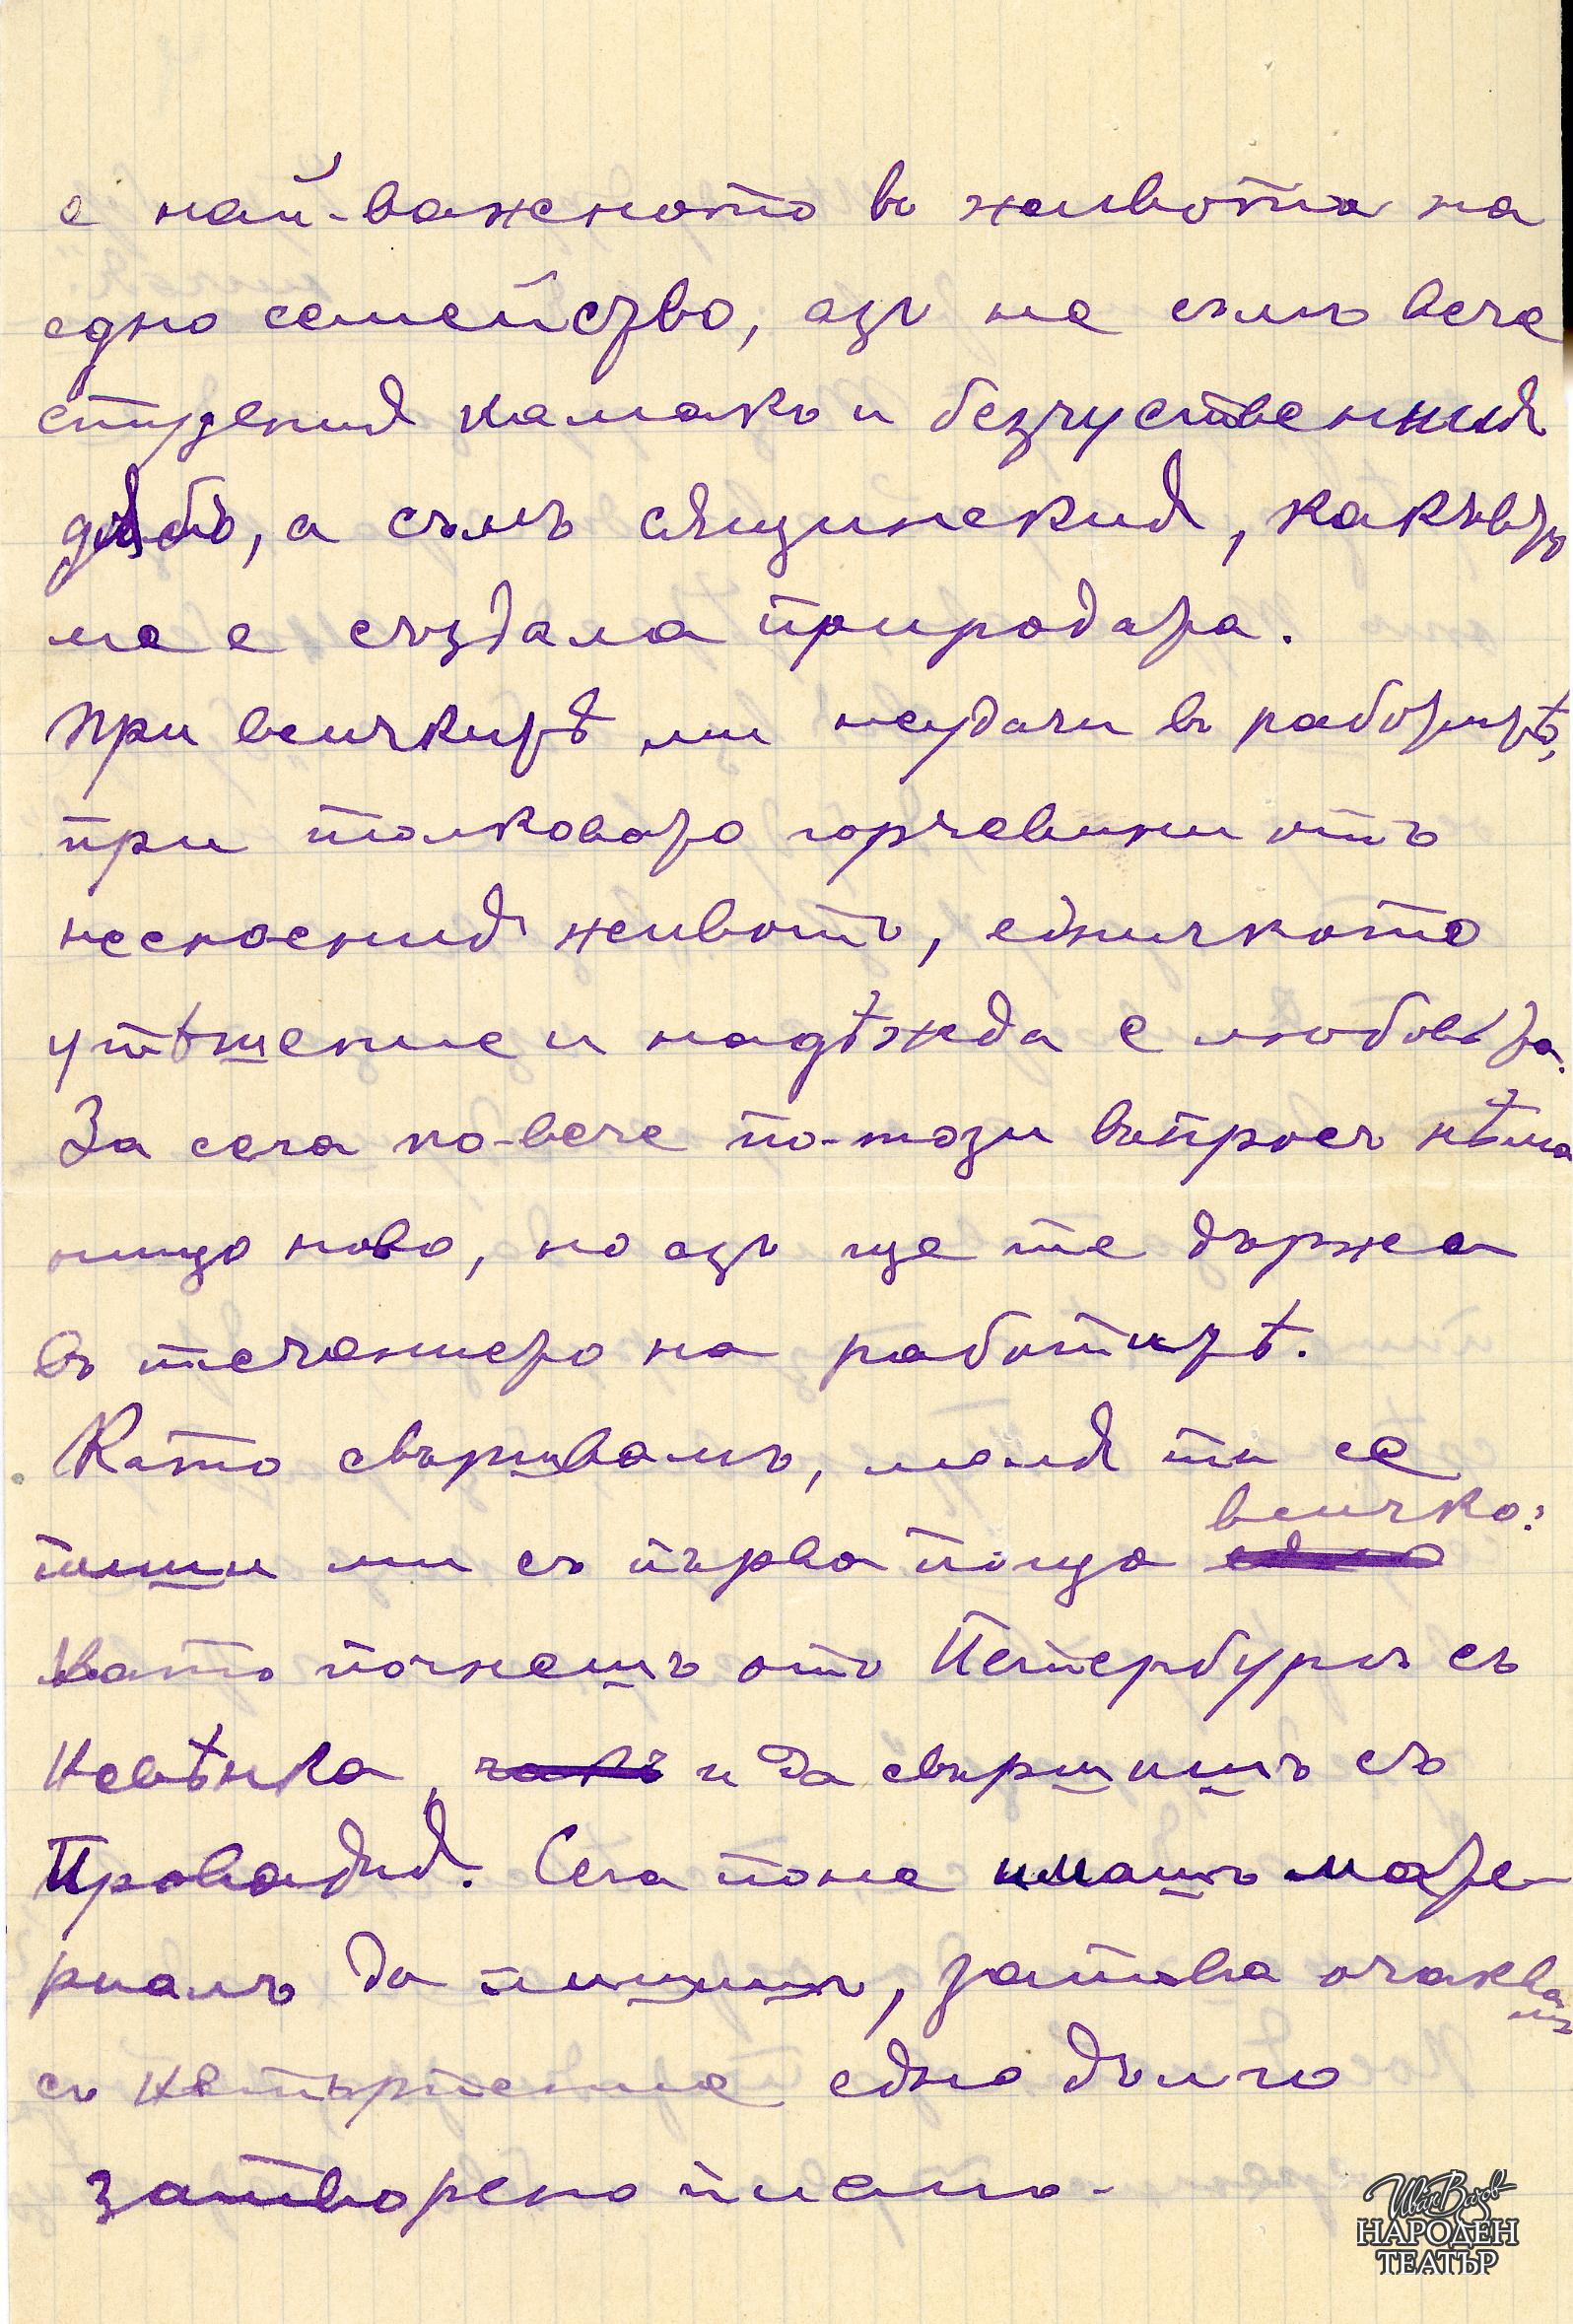 е най-важеното въ живота на
едно семейство, азъ не съмъ вече
студения камъкъ и безчуственния
дѫбъ, а съмъ сѫщинския, какъвто
ме е създала природата.
При всичкитѣ ми неудачи въ работитѣ,
при толковато горчевини отъ
несносния животъ, едничкото
утѣшение и надѣжда е любовьта.
За сега по-вече по-този въпросъ нѣма
нищо ново, но азъ ще те държа
въ течението на работитѣ.
Като свършвамъ, моля ти се
всичко:
пиши ми съ първа поща
като почнешъ отъ Петербургъ съ
Невѣнка, и да свършишъ съ
Провадия. Сега поне имашъ мате-
риалъ да пишишъ, затова очаквамъ
съ нетърпение едно дълго
затворено писмо.
Иван Вазов
НАРОДЕН
ТЕАТЪР